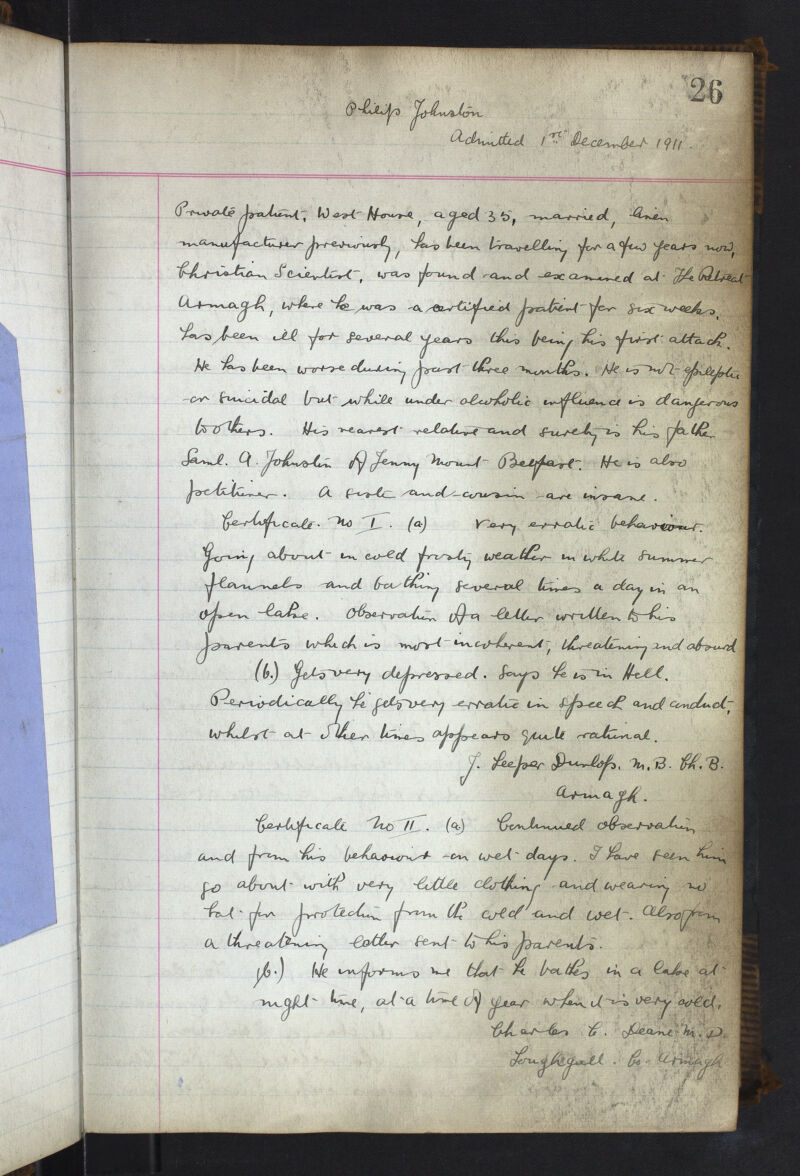 26
Philip Johnston
Admitted 1st December 1911.
Private patient, West House, aged 35, married, linen
manufacturer previously, has been travelling for a few years now,
Christian Scientist, was found and examined at The Retreat
Armagh, where he was a certified patient for six weeks.
Has been ill for several years this being his first attack.
He has been worse during past three months. He is not epileptic
or suicidal but while under alcoholic influence is dangerous
to others. His nearest relative and surety is his father
Saml. A. Johnston of Jenny Mount Belfast. He is also
petitioner. A sister and cousin are insane.
Certificate. No I. (a) Very erratic behaviour.
Going about in cold frosty weather in white summer
flannels and bathing several times a day in an
open lake. Observation of a letter written to his
parents which is most incoherent, threatening and absurd
(b.) Gets very depressed. Says he is in Hell.
Periodically he gets very erratic in speech and conduct,
whilst at other times appears quite rational.
J. Leeper Dunlop. M.B. Ch.B.
Armagh.
Certificate No II. (a) Continued observation
and from his behaviour on wet days. I have seen him
go about with very little clothing and wearing no
hat for protection from the cold and wet. Also from
a threatening letter sent to his parents.
(b.) He informs me that he bathes in a lake at
night time, at a time of year when it is very cold.
Charles C. Deane M.D.
Loughgall. Co. Armagh